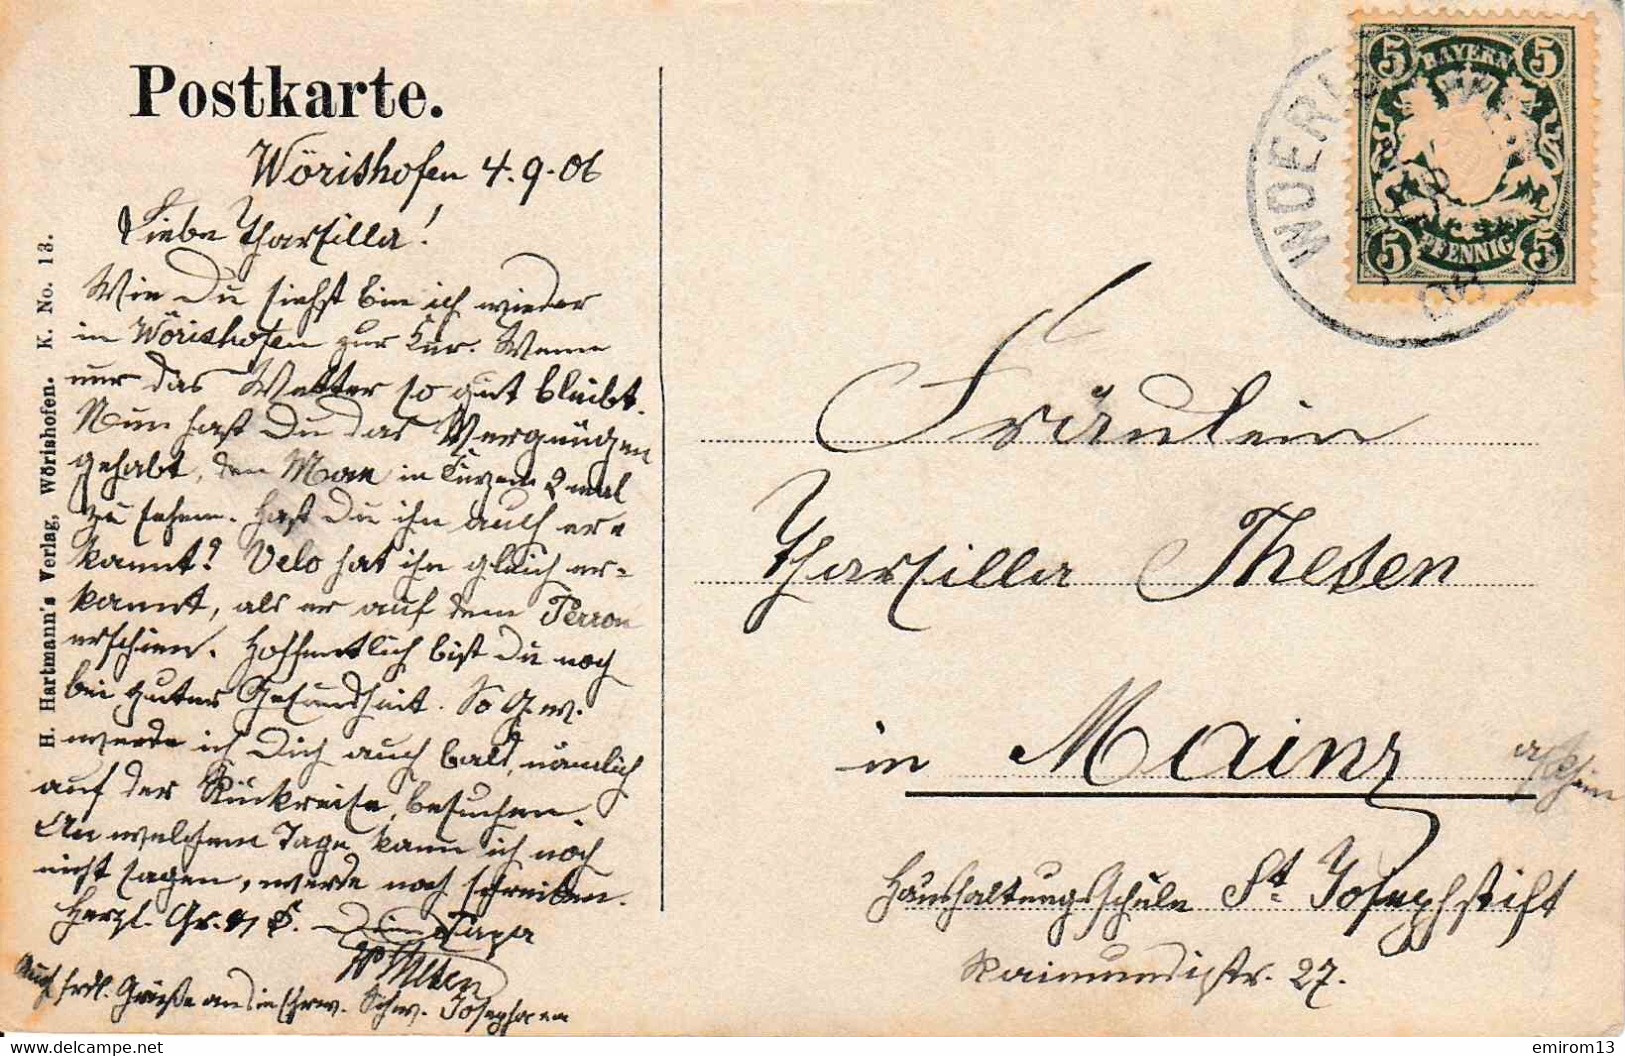 Postkarte.
Wörishofen 4.9.06
Liebe Tharsilla!
Wie Du siehst bin ich wieder
in Wörishofen zur Kur. Wenn
nur das Wetter so gut bleibt.
Nun hast Du das Vergnügen
gehabt, den Mann in Kurzem 2 mal
zu sehen. Hast Du ihn auch er=
kannt? Velo hat ihn gleich er=
kannt, als er auf dem Perron
erschien. Hoffentlich bist Du noch
bei guter Gesundheit. So G. w.
werde ich Dich auch bald, nämlich
auf der Rückreise, besuchen.
An welchem Tage kann ich noch
nicht sagen, werde noch schreiben.
Herzl. Gr. u K. Dein Papa
Auch frdl. Grüße an die ehrw. Schw. Josepha
H. Hartmann's Verlag, Wörishofen. K. No. 13.
BAYERN
5 5
5 PFENNIG 5
Fräulein
Tharsilla Thesen
in Mainz a/Rhein
Haushaltungsschule St. Josephstift
Raimundistr. 27.
emirom13
www.delcampe.net